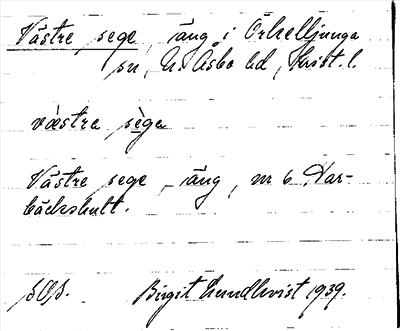 Västre sege, äng i Örkelljunga
sn, N. Åsbo hd, Krist. l.
væstra sègə
Västre sege, äng, nr 6 Har-
bäckshult.
Birgit Lundkvist 1939.